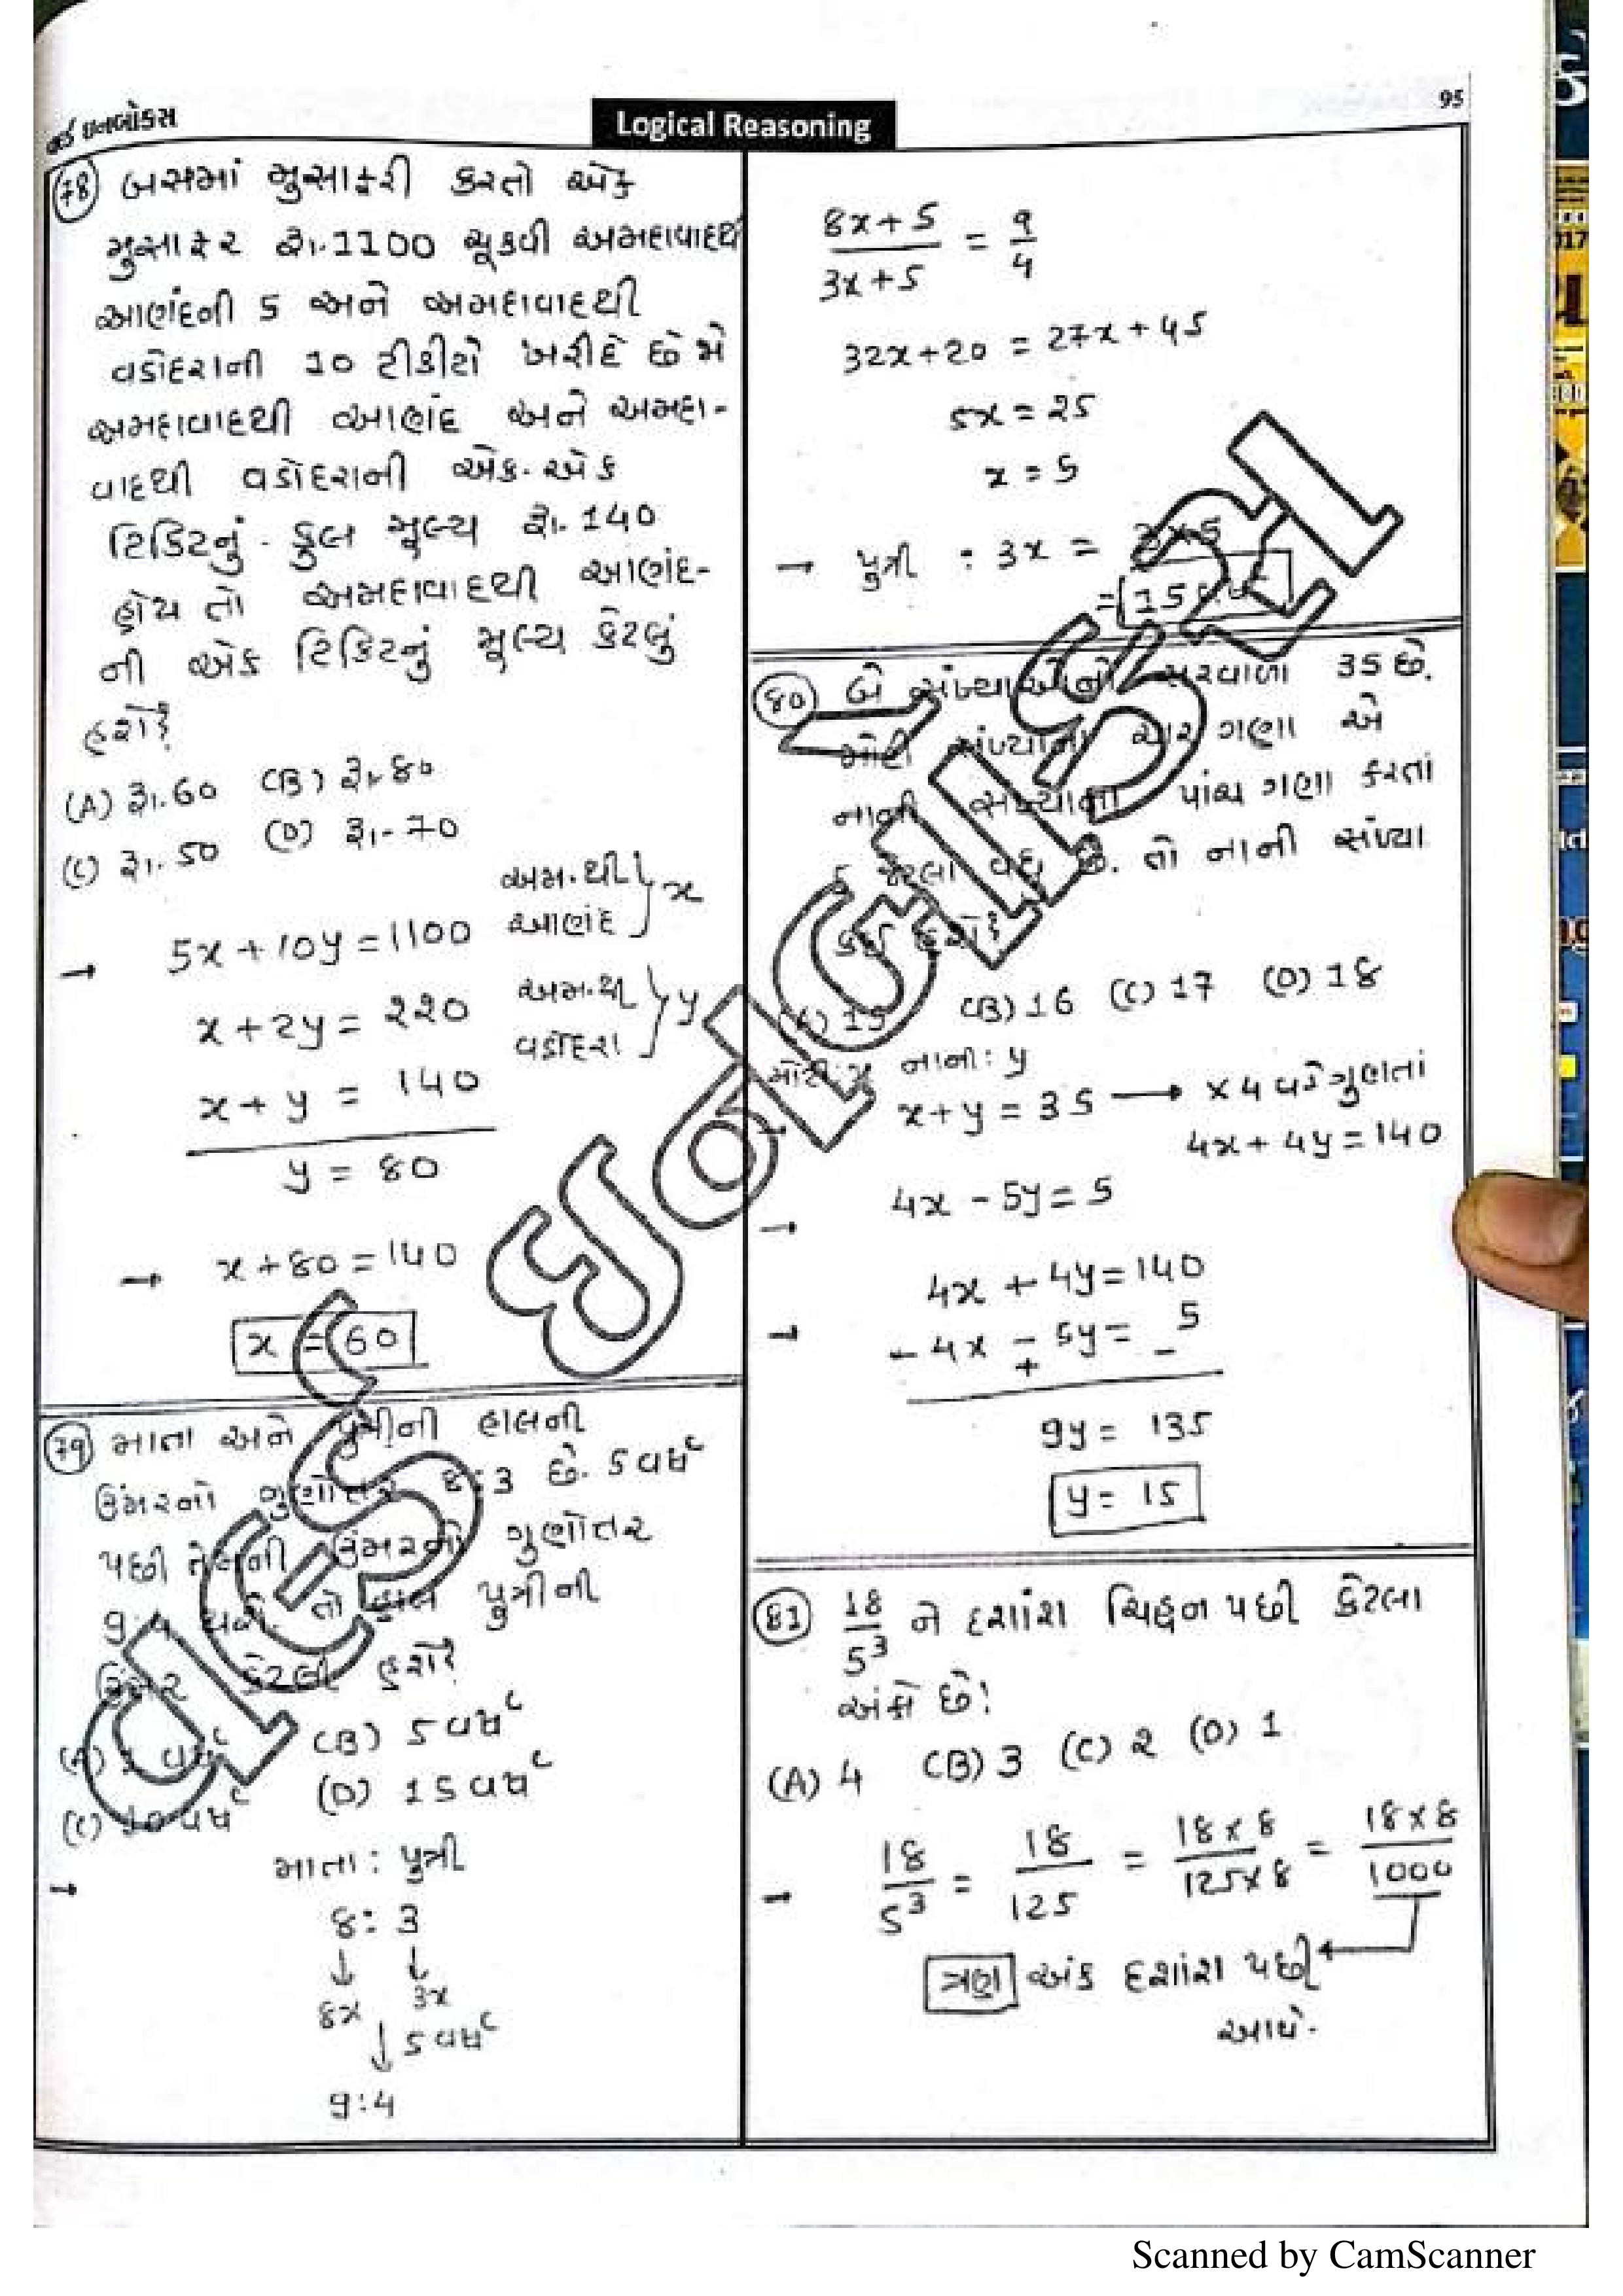 વર્લ્ડ ઇનબોક્સ
Logical Reasoning
95
78 બસમાં મુસાફરી કરતો એક
મુસાફર રૂા.1100 ચૂકવી અમદાવાદથી
આણંદની 5 અને અમદાવાદથી
વડોદરાની 10 ટીકીટો ખરીદે છે જો
અમદાવાદથી આણંદ અને અમદા-
વાદથી વડોદરાની એક-એક
ટિકિટનું કુલ મૂલ્ય રૂા. 140
હોય તો અમદાવાદથી આણંદ-
ની એક ટિકિટનું મૂલ્ય કેટલું
હશે?
(A) રૂા.60 (B) રૂા.80
(C) રૂા.50 (D) રૂા.70
→ 5x + 10y = 1100
x + 2y = 220
x + y = 140
y = 80
અમ.થી આણંદ } x
અમ.થી વડોદરા } y
→ x + 80 = 140
x = 60
79 માતા અને પુત્રીની હાલની
ઉંમરનો ગુણોત્તર 8:3 છે. 5 વર્ષ
પછી તેમની ઉંમરનો ગુણોતર
9:4 થશે. તો હાલ પુત્રીની
ઉંમર કેટલી હશે?
(B) 5 વર્ષ
(C) 10 વર્ષ (D) 15 વર્ષ
→ માતા : પુત્રી
8 : 3
↓ ↓
8x 3x
↓ 5 વર્ષ
9:4
8x + 5 / 3x + 5 = 9/4
32x + 20 = 27x + 45
5x = 25
x = 5
→ પુત્રી : 3x = 3×5
= 15 વર્ષ
80 બે સંખ્યાઓનો સરવાળો 35 છે.
મોટી સંખ્યાના ચાર ગણા એ
નાની સંખ્યાના પાંચ ગણા કરતાં
5 જેટલા વધુ છે. તો નાની સંખ્યા
કઈ હશે?
(A) 15 (B) 16 (C) 17 (D) 18
મોટી: x નાની: y
→ x + y = 35 → × 4 વડે ગુણતાં
4x + 4y = 140
→ 4x - 5y = 5
4x + 4y = 140
→ - 4x - 5y = 5
+ -
9y = 135
y = 15
81 18/5³ ને દશાંશ ચિહ્ન પછી કેટલા
અંકો છે?
(A) 4 (B) 3 (C) 2 (D) 1
→ 18/5³ = 18/125 = 18×8/125×8 = 18×8/1000
ત્રણ અંક દશાંશ પછી
આવે.
Scanned by CamScanner